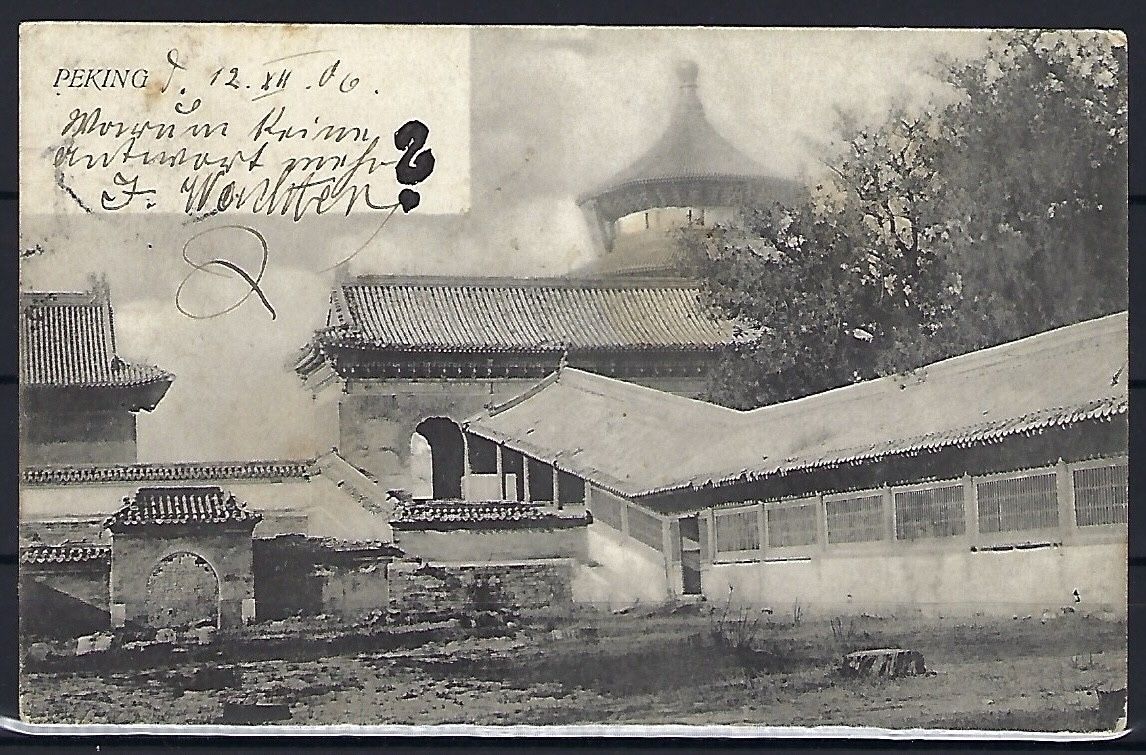 PEKING d. 12. XII. 06.
Warum keine
antwort mehr?